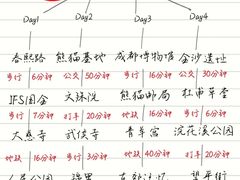 Day1 Day2 Day3 Day4
春熙路 熊猫基地 成都博物馆 金沙遗址
步行 6分钟 公交 50分钟 步行 公交 30分钟
IFS国金 文殊院 熊猫邮局 杜甫草堂
步行 7分钟 打车 20分钟 步行 6分钟
大慈寺 武侯寺 青羊宫 浣花溪公园
地铁 16分钟 步行 3分钟 地铁 40分钟 打车 20分钟
人民公园 望平街